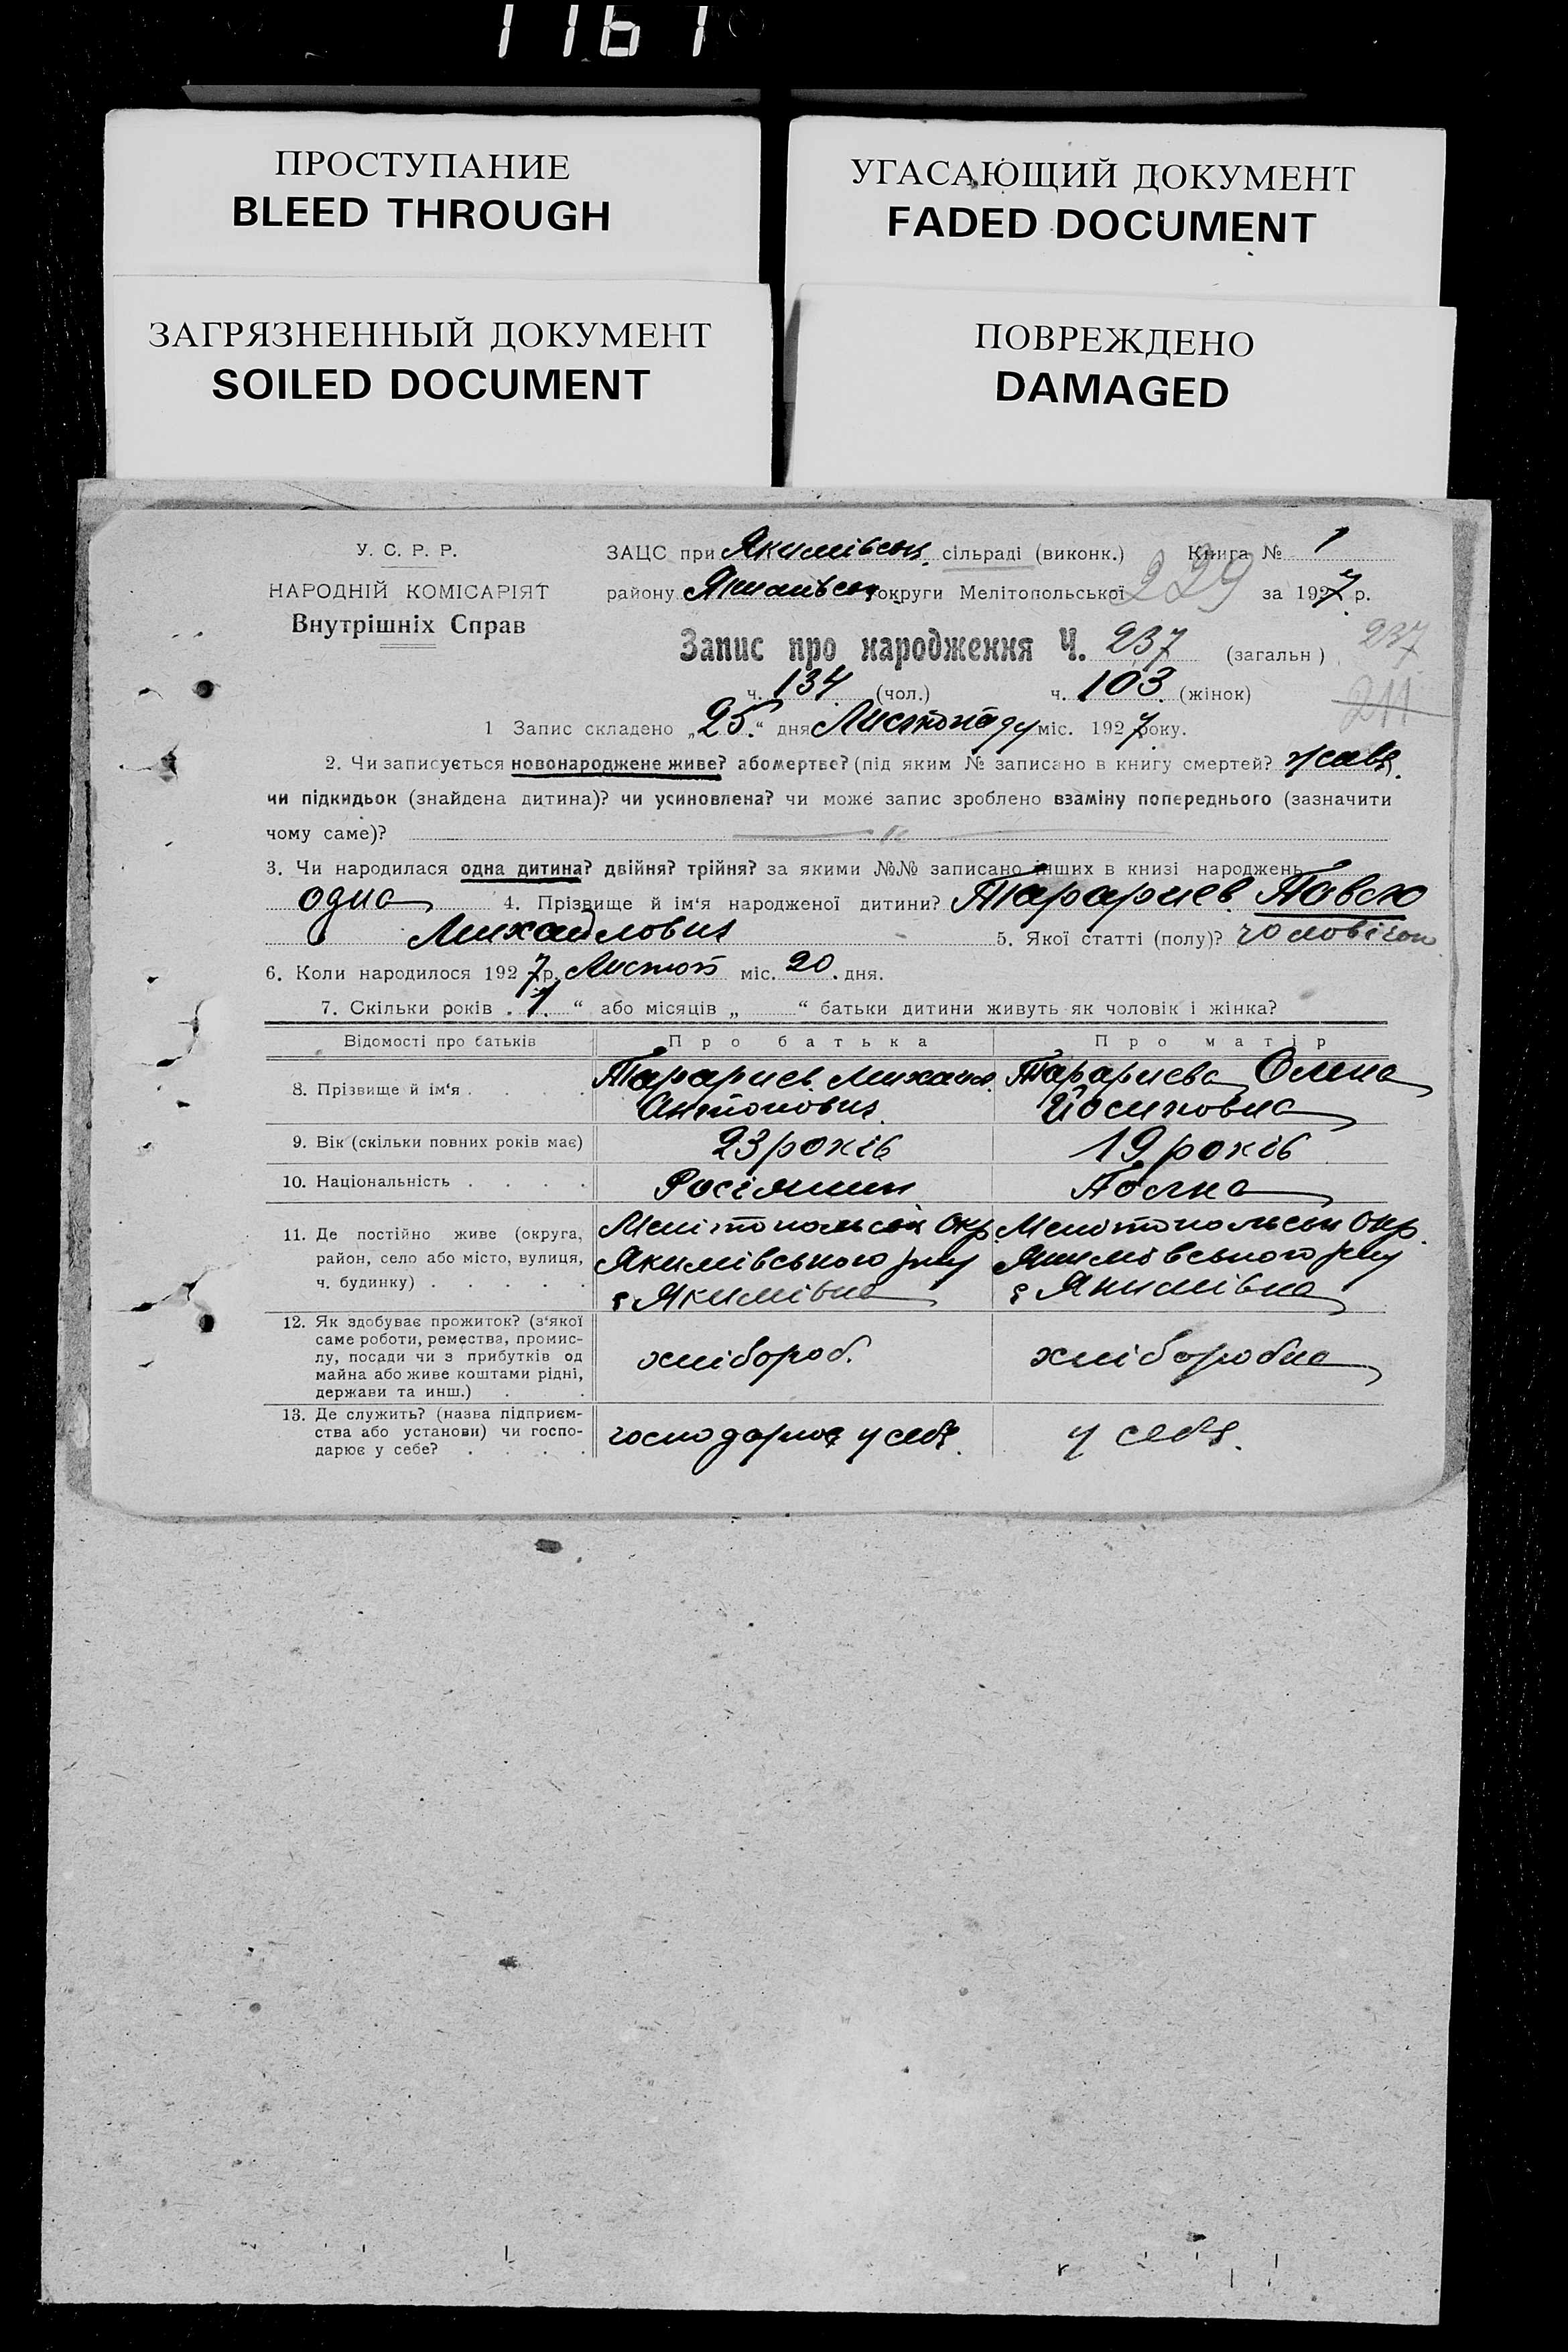 1161
ПРОСТУПАНИЕ
BLEED THROUGH
УГАСАЮЩИЙ ДОКУМЕНТ
FADED DOCUMENT
ЗАГРЯЗНЕННЫЙ ДОКУМЕНТ
SOILED DOCUMENT
ПОВРЕЖДЕНО
DAMAGED
У. С. Р. Р.
НАРОДНІЙ КОМІСАРІЯТ
Внутрішніх Справ
ЗАЦС при Якимівськ. сільраді (виконк.) Книга № 1
району округи Мелітопольської 229 за 1927 р.
Запис про народження Ч. 237 (загальн) 237
ч. 134 (чол.) ч. 103 (жінок) 211
1 Запис складено „25“ дня Листопаду міс. 1927 року.
2. Чи записується новонароджене живе? або мертве? (під яким № записано в книгу смертей?
чи підкидьок (знайдена дитина)? чи усиновлена? чи може запис зроблено взаміну попереднього (зазначити
чому саме)? "
3. Чи народилася одна дитина? двійня? трійня? за якими №№ записано инших в книзі народжень
одна 4. Прізвище й ім‘я народженої дитини? Тарариев Павло
Михайлович 5. Якої статті (полу)?
6. Коли народилося 1927 р. Листоп міс. 20. дня.
7. Скільки років „1“ або місяців „ “ батьки дитини живуть як чоловік і жінка?
Відомості про батьків Про батька Про матір
8. Прізвище й ім‘я . . . . Тарариев Михаил Тарариева Олена
Антонович Йосиповна
9. Вік (скільки повних років має) 23 років 19 років
10. Національність . . . . Росіянин Полка
11. Де постійно живе (округа, Мелітопольськ Окр. Мелітопольськ Окр.
район, село або місто, вулиця, Якимівського р-ну Якимівського р-ну
ч. будинку) . . . . . с Якимівка с Якимівка
12. Як здобуває прожиток? (з‘якої
саме роботи, ремества, промис-
лу, посади чи з прибутків од хлібороб. хліборобка
майна або живе коштами рідні,
держави та инш.) . .
13. Де служить? (назва підприєм-
ства або установи) чи госпо- господарює у себе. у себе.
дарює у себе? . . . .